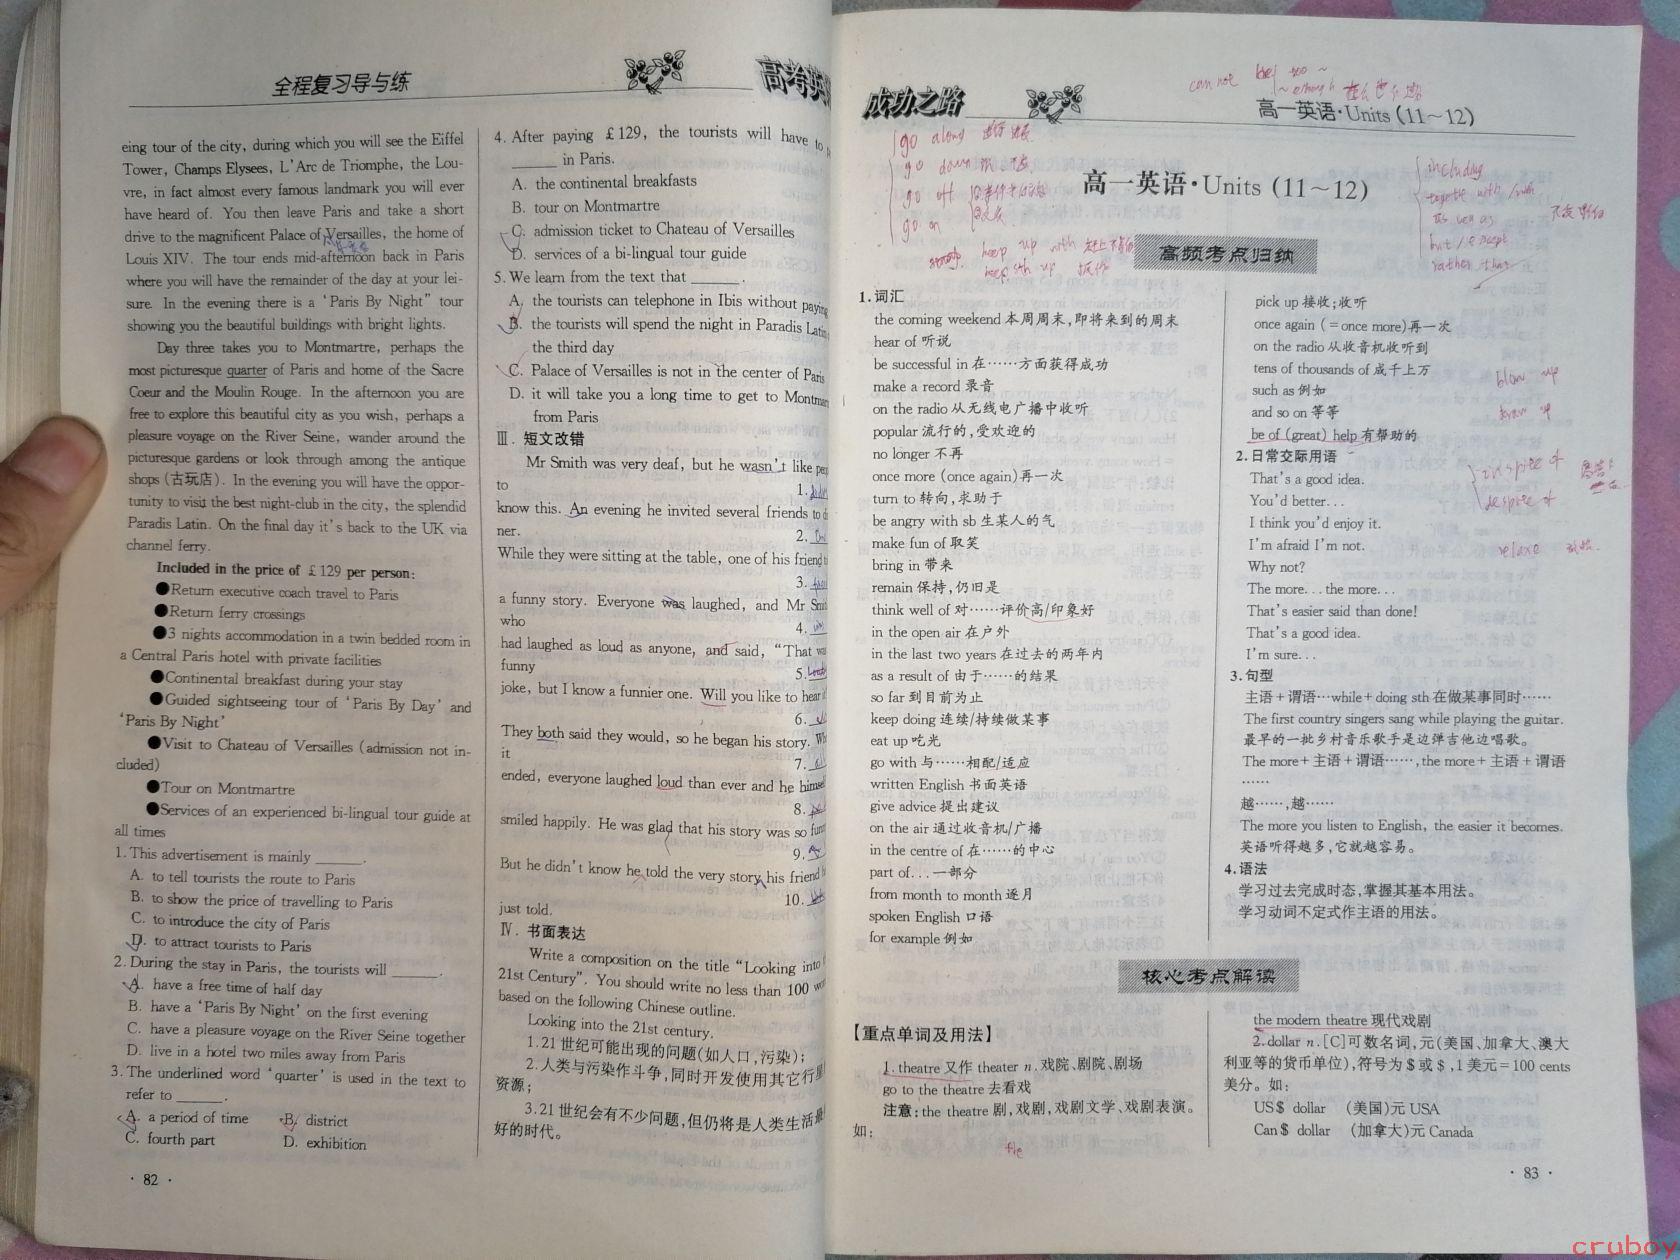 全程复习导与练
高考英
eing tour of the city, during which you will see the Eiffel
Tower, Champs Elysees, L'Arc de Triomphe, the Lou-
vre, in fact almost every famous landmark you will ever
have heard of. You then leave Paris and take a short
drive to the magnificent Palace of Versailles, the home of
Louis XIV. The tour ends mid-afternoon back in Paris
where you will have the remainder of the day at your lei-
sure. In the evening there is a 'Paris By Night" tour
showing you the beautiful buildings with bright lights.
Day three takes you to Montmartre, perhaps the
most picturesque quarter of Paris and home of the Sacre
Coeur and the Moulin Rouge. In the afternoon you are
free to explore this beautiful city as you wish, perhaps a
pleasure voyage on the River Seine, wander around the
picturesque gardens or look through among the antique
shops (古玩店). In the evening you will have the oppor-
tunity to visit the best night-club in the city, the splendid
Paradis Latin. On the final day it's back to the UK via
channel ferry.
Included in the price of £129 per person:
●Return executive coach travel to Paris
●Return ferry crossings
●3 nights accommodation in a twin bedded room in
a Central Paris hotel with private facilities
●Continental breakfast during your stay
●Guided sightseeing tour of 'Paris By Day' and
'Paris By Night'
●Visit to Chateau of Versailles (admission not in-
cluded)
●Tour on Montmartre
●Services of an experienced bi-lingual tour guide at
all times
1. This advertisement is mainly ______.
A. to tell tourists the route to Paris
B. to show the price of travelling to Paris
C. to introduce the city of Paris
D. to attract tourists to Paris
2. During the stay in Paris, the tourists will ______.
A. have a free time of half day
B. have a 'Paris By Night' on the first evening
C. have a pleasure voyage on the River Seine together
D. live in a hotel two miles away from Paris
3. The underlined word 'quarter' is used in the text to
refer to ______.
A. a period of time B. district
C. fourth part D. exhibition
· 82 ·
4. After paying £129, the tourists will have to
______ in Paris.
A. the continental breakfasts
B. tour on Montmartre
C. admission ticket to Chateau of Versailles
D. services of a bi-lingual tour guide
5. We learn from the text that ______.
A. the tourists can telephone in Ibis without paying
B. the tourists will spend the night in Paradis Latin
the third day
C. Palace of Versailles is not in the center of Paris
D. it will take you a long time to get to Montmar
from Paris
Ⅲ. 短文改错
Mr Smith was very deaf, but he wasn't like
to
1.
know this. An evening he invited several friends to
ner.
2.
While they were sitting at the table, one of his friend
3.
a funny story. Everyone was laughed, and Mr Smi
who
4.
had laughed as loud as anyone, and said, "That was
funny
5.
joke, but I know a funnier one. Will you like to hear
6.
They both said they would, so he began his story. W
it
7.
ended, everyone laughed loud than ever and he himse
8.
smiled happily. He was glad that his story was so fun
9.
But he didn't know he told the very story his friend
10.
just told.
Ⅳ. 书面表达
Write a composition on the title "Looking into
21st Century". You should write no less than 100 wor
based on the following Chinese outline.
Looking into the 21st century.
1.21世纪可能出现的问题(如人口,污染);
2.人类与污染作斗争,同时开发使用其它行星
资源;
3.21世纪会有不少问题,但仍将是人类生活最
好的时代。
成功之路
高一英语·Units (11~12)
can not
go along
go down
go off
go on
keep up with
keep sth up
including
together with
as well as
but / except
rather than
高一英语·Units (11~12)
高频考点归纳
1.词汇
the coming weekend 本周周末,即将来到的周末
hear of 听说
be successful in 在……方面获得成功
make a record 录音
on the radio 从无线电广播中收听
popular 流行的,受欢迎的
no longer 不再
once more (once again)再一次
turn to 转向,求助于
be angry with sb 生某人的气
make fun of 取笑
bring in 带来
remain 保持,仍旧是
think well of 对……评价高/印象好
in the open air 在户外
in the last two years 在过去的两年内
as a result of 由于……的结果
so far 到目前为止
keep doing 连续/持续做某事
eat up 吃光
go with 与……相配/适应
written English 书面英语
give advice 提出建议
on the air 通过收音机/广播
in the centre of 在……的中心
part of... 一部分
from month to month 逐月
spoken English 口语
for example 例如
pick up 接收;收听
once again (=once more)再一次
on the radio 从收音机收听到
tens of thousands of 成千上万
such as 例如
and so on 等等
be of (great) help 有帮助的
blow up
2.日常交际用语
That's a good idea.
You'd better...
I think you'd enjoy it.
I'm afraid I'm not.
Why not?
The more... the more...
That's easier said than done!
That's a good idea.
I'm sure...
in spite of
despite of
3.句型
主语+谓语…while+doing sth 在做某事同时……
The first country singers sang while playing the guitar.
最早的一批乡村音乐歌手是边弹吉他边唱歌。
The more+主语+谓语……,the more+主语+谓语
……
越……,越……
The more you listen to English, the easier it becomes.
英语听得越多,它就越容易。
4.语法
学习过去完成时态,掌握其基本用法。
学习动词不定式作主语的用法。
核心考点解读
【重点单词及用法】
1. theatre 又作 theater n. 戏院、剧院、剧场
go to the theatre 去看戏
注意: the theatre 剧,戏剧,戏剧文学、戏剧表演。
如:
the modern theatre 现代戏剧
2.dollar n. [C]可数名词,元(美国、加拿大、澳大
利亚等的货币单位),符号为$或$,1美元=100 cents
美分。如:
US$ dollar (美国)元 USA
Can$ dollar (加拿大)元 Canada
the
· 83 ·
cruboy